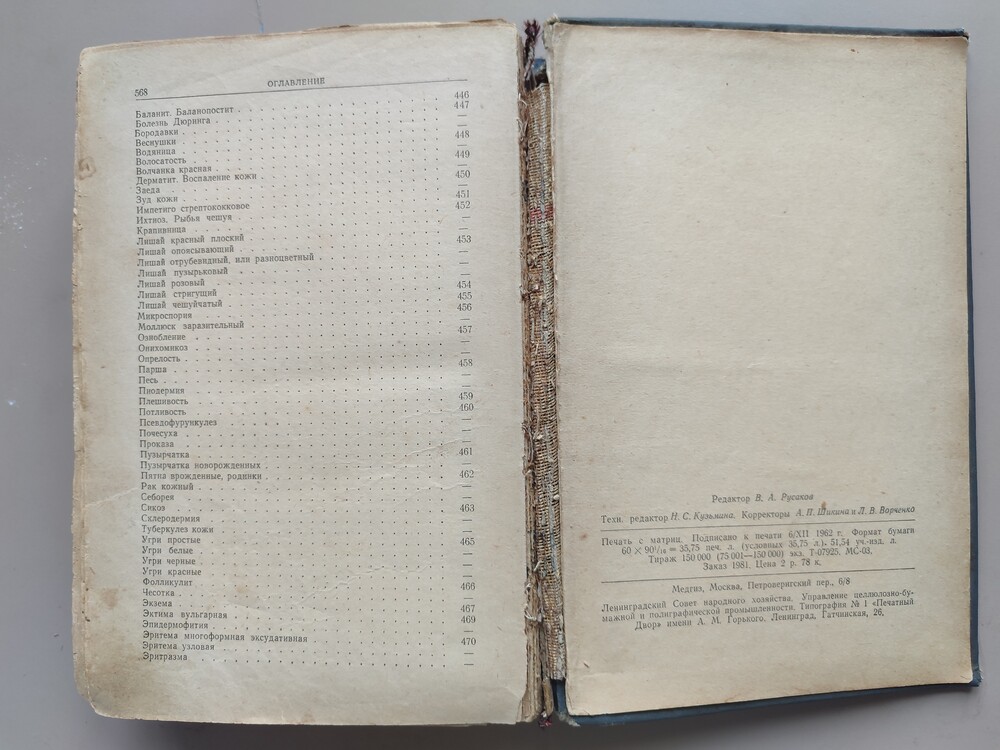 568
ОГЛАВЛЕНИЕ
Баланит. Баланопостит . . . 446
Болезнь Дюринга . . . 447
Бородавки . . . —
Веснушки . . . —
Водяница . . . 448
Волосатость . . . —
Волчанка красная . . . 449
Дерматит. Воспаление кожи . . . —
Заеда . . . 450
Зуд кожи . . . —
Импетиго стрептококковое . . . 451
Ихтиоз. Рыбья чешуя . . . 452
Крапивница . . . —
Лишай красный плоский . . . —
Лишай опоясывающий . . . 453
Лишай отрубевидный, или разноцветный . . . —
Лишай пузырьковый . . . —
Лишай розовый . . . —
Лишай стригущий . . . 454
Лишай чешуйчатый . . . 455
Микроспория . . . 456
Моллюск заразительный . . . —
Ознобление . . . 457
Онихомикоз . . . —
Опрелость . . . —
Парша . . . 458
Песь . . . —
Пиодермия . . . —
Плешивость . . . 459
Потливость . . . 460
Псевдофурункулез . . . —
Почесуха . . . —
Проказа . . . —
Пузырчатка . . . 461
Пузырчатка новорожденных . . . —
Пятна врожденные, родинки . . . 462
Рак кожный . . . —
Себорея . . . —
Сикоз . . . 463
Склеродермия . . . —
Туберкулез кожи . . . —
Угри простые . . . 465
Угри белые . . . —
Угри черные . . . —
Угри красные . . . —
Фолликулит . . . —
Чесотка . . . 466
Экзема . . . —
Эктима вульгарная . . . 467
Эпидермофития . . . 469
Эритема многоформная эксудативная . . . —
Эритема узловая . . . 470
Эритразма . . . —
Редактор В. А. Русаков
Техн. редактор Н. С. Кузьмина. Корректоры А. П. Шикина и Л. В. Ворченко
Печать с матриц. Подписано к печати 6/XII 1962 г. Формат бумаги
60 × 90 1/16 = 35,75 печ. л. (условных 35,75 л.). 51,54 уч.-изд. л.
Тираж 150 000 (75 001—150 000) экз. Т-07925. МС-03.
Заказ 1981. Цена 2 р. 78 к.
Медгиз, Москва, Петроверигский пер., 6/8
Ленинградский Совет народного хозяйства. Управление целлюлозно-бу-
мажной и полиграфической промышленности. Типография № 1 «Печатный
Двор» имени А. М. Горького. Ленинград, Гатчинская, 26.